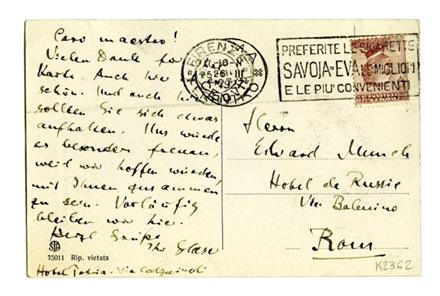 Caro maestro!
Vielen Dank für
Karte. Auch hier
schön. Und auch hier
sollten Sie sich etwas
aufhalten. Uns würde
es besonders freuen,
weil wir hoffen würden,
mit Ihnen zusammen
zu sein. Vorläufig
bleiben wir hier.
Herzl Grüße
Ihr Glaser
Hotel Via
75011 Rip. vietata
FIRENZE
PREFERITE LE SIGARETTE
SAVOJA=EVA LE MIGLIORI
E LE PIU' CONVENIENTI
Herrn
Edvard Munch
Hotel de Russie
Via Babuino
Rom
K2362